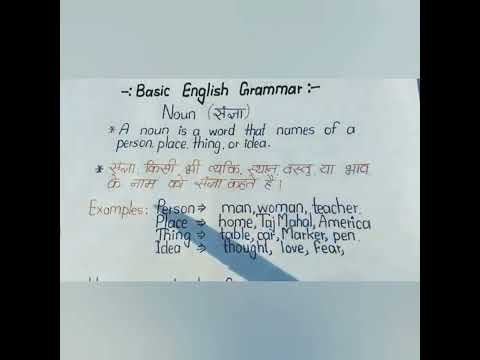 -: Basic English Grammar :-
Noun (संज्ञा)
* A noun is a word that names of a
person, place, thing, or idea.
* संज्ञा किसी भी व्यक्ति, स्थान, वस्तु, या भाव
के नाम को संज्ञा कहते है।
Examples: Person ⇒ man, woman, teacher.
Place ⇒ home, Taj Mahal, America
Thing ⇒ table, car, Marker, pen.
Idea ⇒ thought, love, fear,